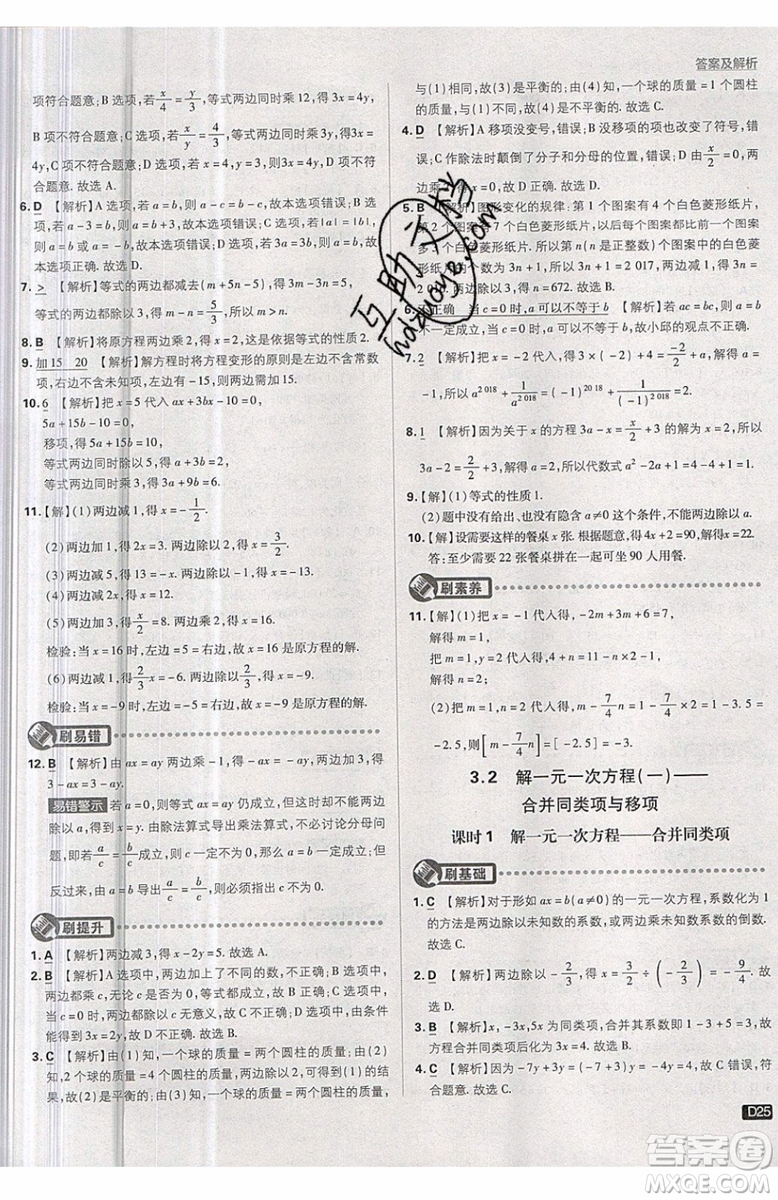 答案及解析
项符合题意;B 选项,若x/4=y/3,等式两边同时乘 12,得 3x=4y,
B 项不符合题意;C 选项,若x/y=4/3,等式两边同时乘 3y,得 3x=
4y,C 项不符合题意;D 选项,若 4x=3y,两边不相等,D 项符合
题意。故选 D。
6. D 【解析】A 选项,a=b,则 a-c=b-c,故本选项错误;B 选
项,a=b,则 a+b=2b,故本选项错误;C 选项,|a|=|b|,
则 a=b 或 a=-b,故本选项错误;D 选项,a=b,则 ac=bc,故
本选项正确。故选 D。
7. > 【解析】等式的两边都减去(m+5n-5),得 3m-3n=5,
等式的两边都除以 3,得 m-n=5/3,所以 m>n。
8. B 【解析】将原方程两边乘 2,得 x=2,这是依据等式的性质 2.
9. 加 15 20 【解析】解方程时将方程变形的原则是左边不含常数
项,右边不含未知项,左边有-15,则左、右两边应加 15.
10. 6 【解析】把 x=5 代入 ax+bx-10=0,得
5a+15b-10=0,
移项,得 5a+15b=10,
等式两边同时除以 5,得 a+3b=2,
等式两边同时乘 3,得 3a+9b=6.
11. 【解】(1)两边减 1,得 x=-1/2.
(2)两边加 1,得 2x=3. 两边除以 2,得 x=3/2.
(3)两边减 5,得 13=-x. 两边除以-1,得 x=-13.
(4)两边减 2x,得 x=4.
(5)两边加 2,得x/2=8. 两边乘 2,得 x=16.
检验:当 x=16 时,左边=右边,故 x=16 是原方程的解.
(6)两边减 5,得2/3x=-6. 两边除以2/3,得 x=-9.
检验:当 x=-9 时,左边=右边,故 x=-9 是原方程的解.
刷易错
12. B 【解析】由 ax=ay 两边乘-1,得 -ax=-ay,两边加 3,得
3-ax=3-ay.
易错警示 若 a=0,则等式 ax=ay 仍成立,但这时两边不能
除以 0,所以 x=y 不一定成立,由除法算式导出乘法算式一
定成立,若a/c=b/c,则隐含的意思是 c 一定不为 0,则 a=b;但
反过来,由 a=b 得出a/c=b/c,还必须确定 c≠0.
刷提升
1. A 【解析】两边减 3,得 x-2y=5. 故选 A.
2. B 【解析】A 中,两边加上了不同的数,不正确;B 中,两边都
乘 c,无论 c 是否为 0,等式都成立,故 B 正确;C 中,两边都
除以 c,若 c=0,则两边除以 c 无意义,不正确;D 中,由所给条
件能得到 x=±3,所以 D 不正确. 故选 B.
3. C 【解析】由(1)知,一个球的质量=两个圆柱的质量;由(2)
知,2 个球的质量=4 个圆柱的质量,化简可得与(1)一样的结
果,故(2)是平衡的;由(3)知,一个球的质量=2 个圆柱的质量,
与(1)相同,故(3)是平衡的;由(4)知,一个球的质量=1 个圆柱
的质量,与(1)不相同,故是不平衡的. 故选 C.
4. D 【解析】A 移项没变号,错误;B 没移项的项改变了符号,错
误;C 作除法时颠倒了分子和分母的位置,错误;D 由x/2=0,两
边乘 2,得 x=0. 故选 D.
5. B 【解析】图形变化的规律:第 1 个图案有 4 张白色菱形纸片,
第 2 个图案多 3 张白色菱形纸片,第 3 个图案又多 3 张白色菱
形纸片,所以第 n(n 是正整数)个图案中的白色菱形纸片的
张数为 3n+1. 由题意,得 3n+1=2 017,解得 n=672.
6. 不正确 当 c=0 时,a 可以不等于 b 【解析】若 ac=bc,则 a=b
不一定成立,当 c=0 时,a 可以不等于 b,故小邱的观点不
正确.
7. 2 【解析】把 x=-2 代入,得 3a+4=-2/2+2a,解得 a=
-1,所以 a^2018+1/a^2018=(-1)^2018+1/(-1)^2018=2.
8. 1 【解析】因为关于 x 的方程 3a-x=x/2+3 的解为 2,所以
3a-2=2/2+3,解得 a=2,所以代数式 a²-2a+1=4-4+1=1.
9. 【解】(1)等式的性质 1.
(2)题中没有给出、也没有隐含 a≠0 这个条件,不能两边除以 a.
10. 【解】设需要这样的餐桌 x 张. 根据题意,得 4x+2=90,解得 x=22.
答:至少需要 22 张餐桌拼在一起可坐 90 人用餐.
刷素养
11. 【解】(1)把 x=-1 代入得,-2m+3m+6=7,
解得 m=1.
把 y=1 代入得,4+n=11-2n-1,解得 n=2.
(2)把 m=1,n=2 代入得,m-7/4n=1-7/4×2=1-3.5=
-2.5,则[m-7/4n]=[-2.5]=-3.
3.2 解一元一次方程(一)——
合并同类项与移项
课时 1 解一元一次方程——合并同类项
刷基础
1. C 【解析】对于形如 ax=b(a≠0)的一元一次方程,系数化为 1
的方法是两边除以未知数的系数,或两边乘未知数的系数的倒数.
2. D 【解析】两边除以-2/3,得 x=3/2÷(-2/3)=-9/4. 故
选 D.
3. B 【解析】x,-3x,5x 为同类项,合并其系数得 1-3+5=3,
合并同类项为 3x=4. 故选 B.
4. C 【解析】A 错误,符合题意.
D25
互助文档
hdzuoye.com
答案圈
MXQE.COM